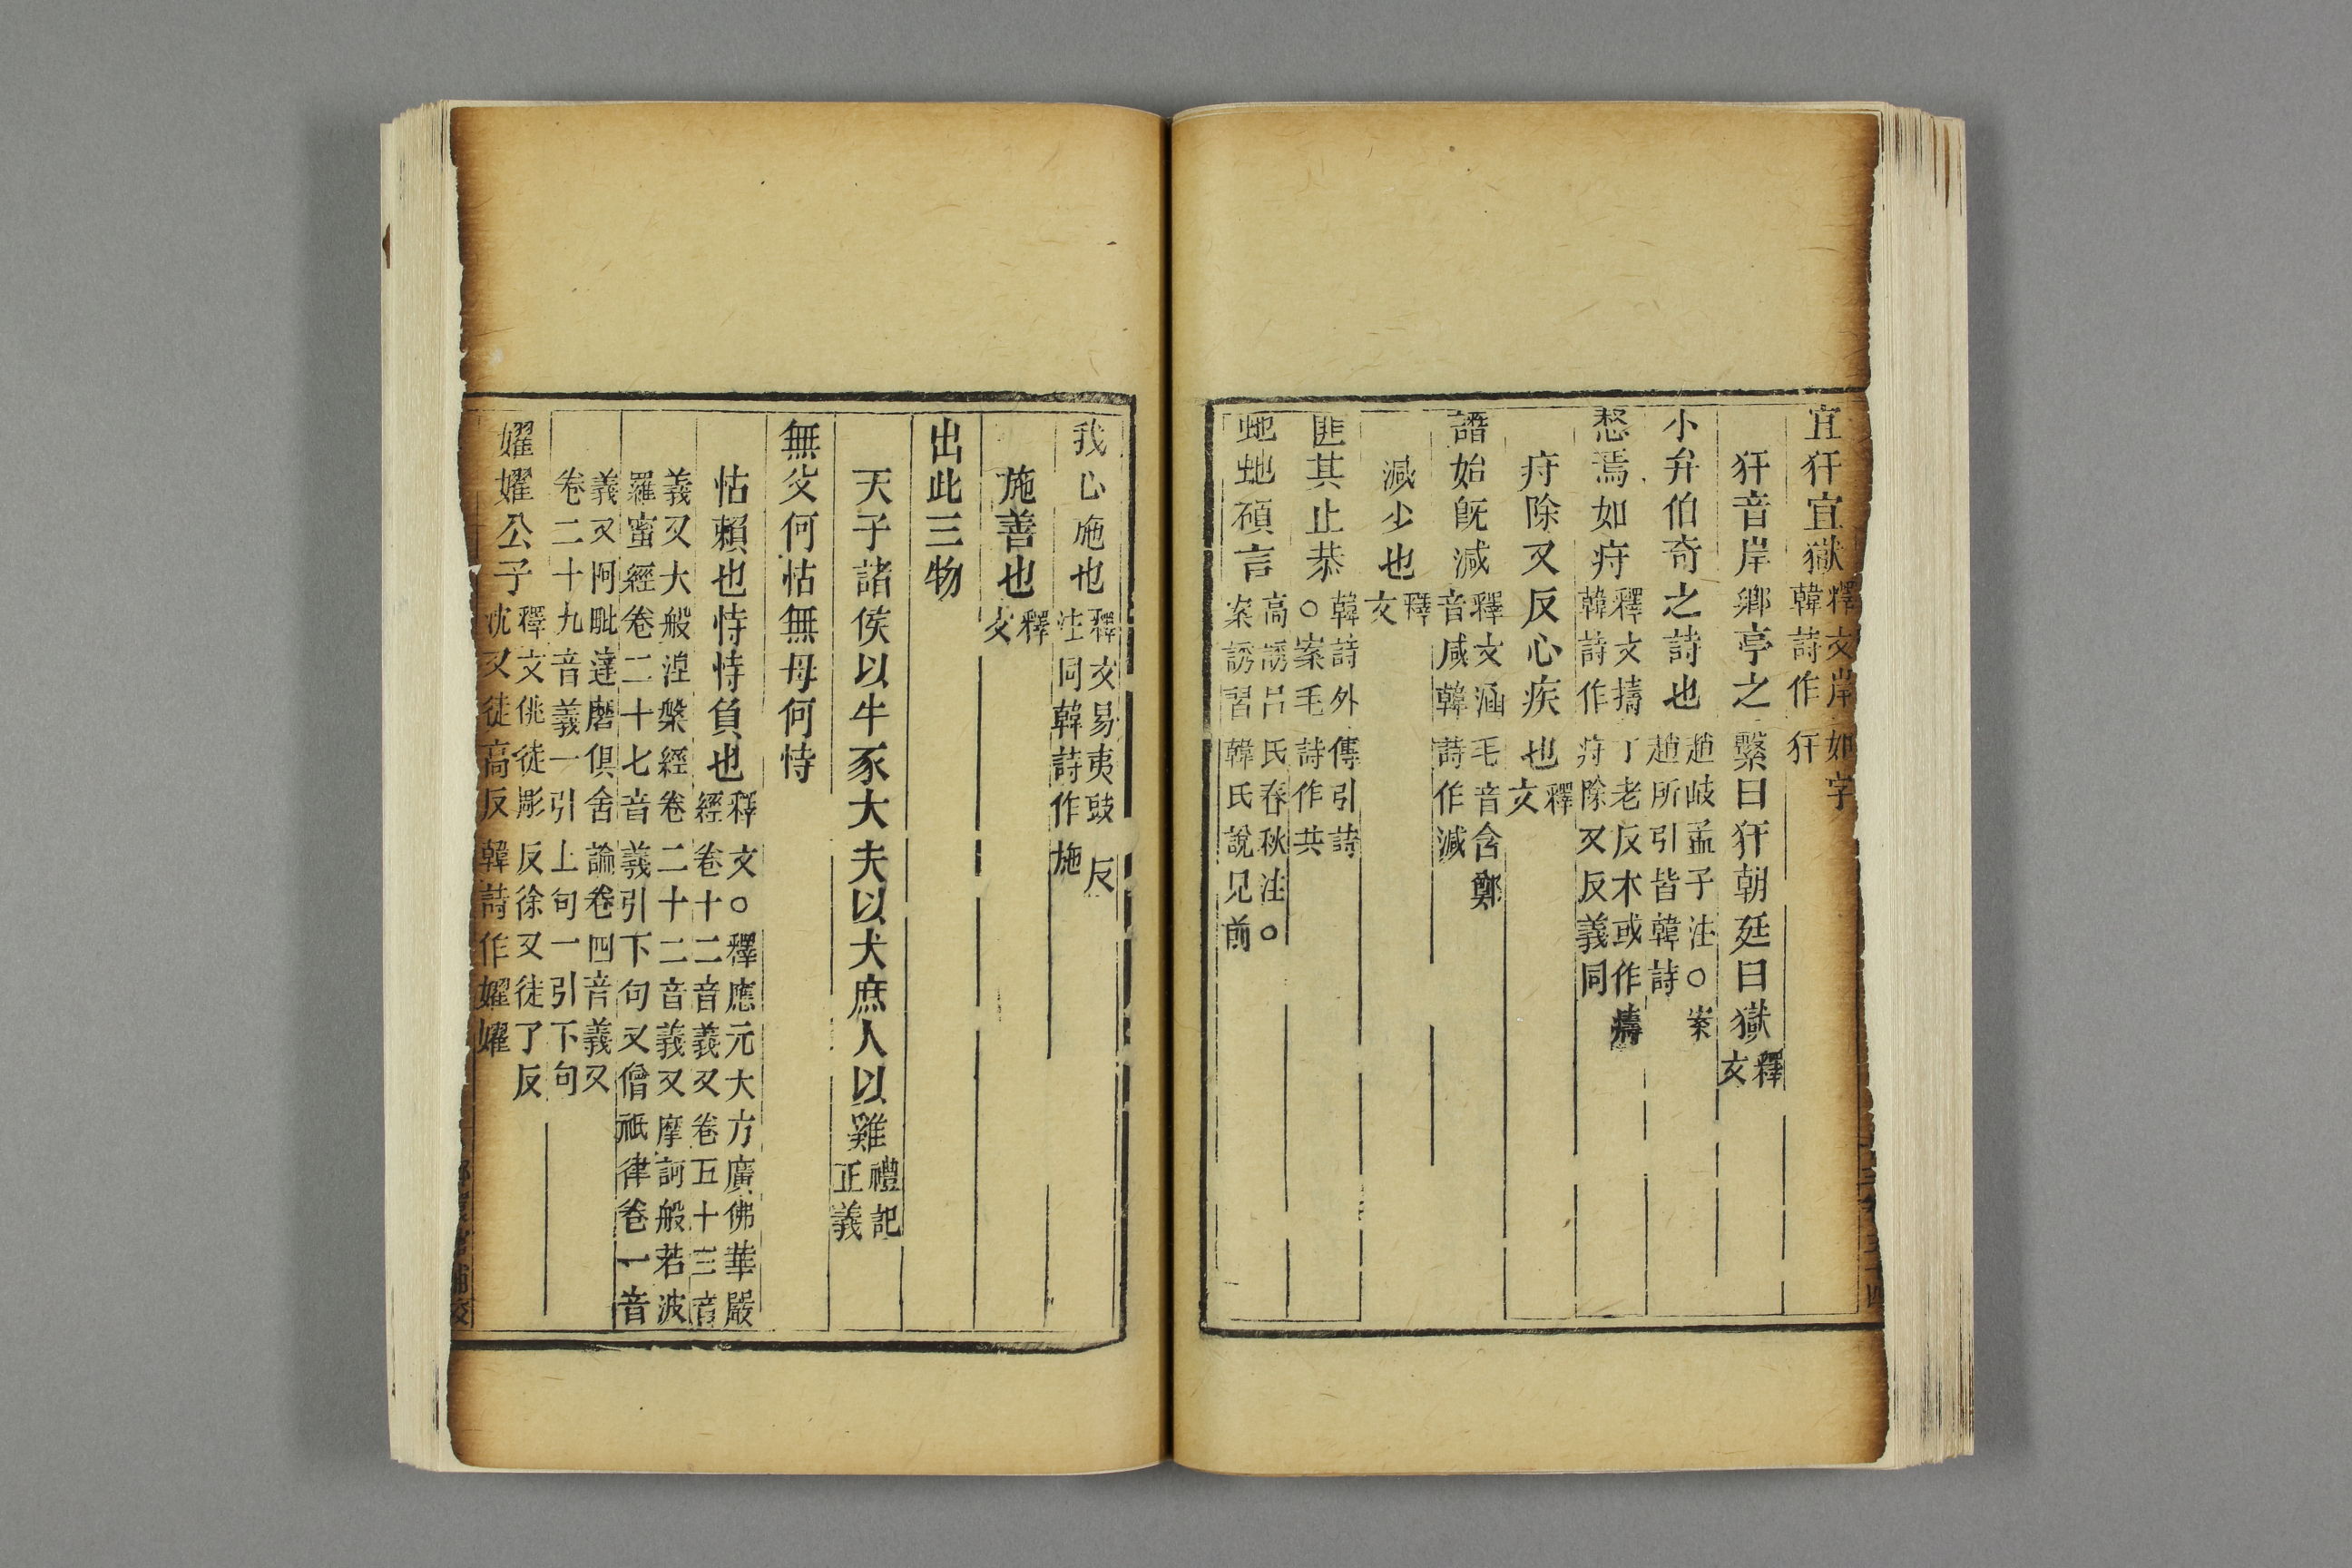 宜犴宜獄釋文岸如字韓詩作犴
犴音岸鄉亭之繫曰犴朝廷曰獄釋文
小弁伯奇之詩也趙岐孟子注○案趙所引皆韓詩
惄焉如疛釋文擣丁老反本或作𤻮韓詩作疛除又反義同
疛除又反心疾也釋文
譖始旣減釋文涵毛音含鄭音咸韓詩作減
減少也釋文
匪其止恭韓詩外傳引詩○案毛詩作共
虵虵碩言高誘呂氏春秋注○案誘習韓氏說見前
我心施也釋文易夷豉反注同韓詩作施
施善也釋文
出此三物
天子諸侯以牛豕大夫以犬庶人以雞禮記正義
無父何怙無母何恃
怙賴也恃恃負也釋文○釋應元大方廣佛華嚴經卷十二音義又卷五十三音
義又大般涅槃經卷二十二音義又摩訶般若波羅蜜經卷二十七音義引下句又僧祇律卷一音
義又阿毗達磨俱舍論卷四音義又卷二十九音義一引上句一引下句
嬥嬥公子釋文佻徒彫反徐又徒了反沈又徒高反韓詩作嬥嬥